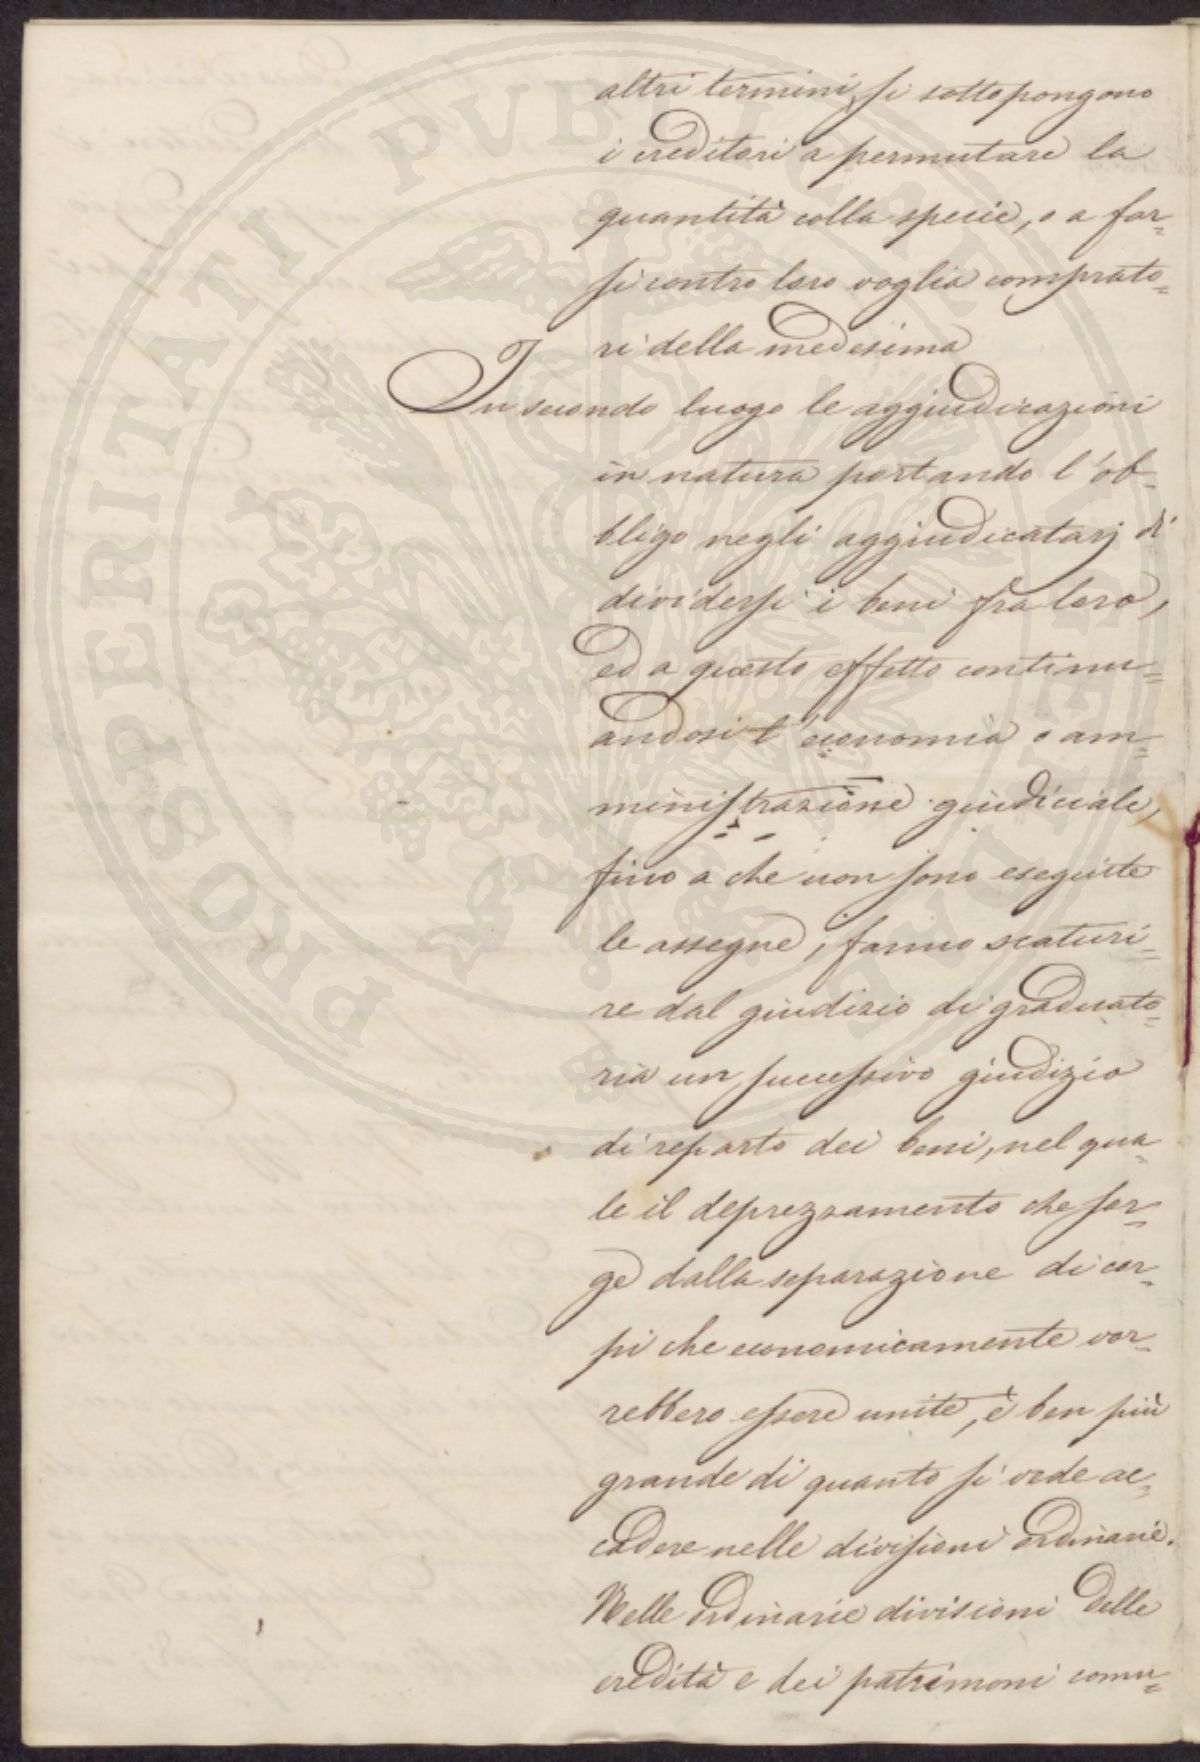 altri termini, si sottopongono
i creditori a permutare la
quantità colla specie, o a far=
si contro loro voglia comprato=
ri della medesima
In secondo luogo le aggiudicazioni
in natura portando l'ob=
bligo negli aggiudicatarj di
dividersi i beni fra loro,
ed a questo effetto continu=
andosi l'economia o am=
ministrazione giudiciale,
fino a che non sono eseguite
le assegne, fanno scaturi=
re dal giudizio di graduato=
ria un successivo giudizio
di reparto dei beni, nel qua=
le il deprezzamento che sor=
ge dalla separazione di cor=
pi che economicamente vor=
rebbero essere unite, è ben più
grande di quanto si vede ac=
cadere nelle divisioni ordinarie.
Nelle ordinarie divisioni delle
eredità e dei patrimoni comu=
PROSPERITATI PVBLICAE